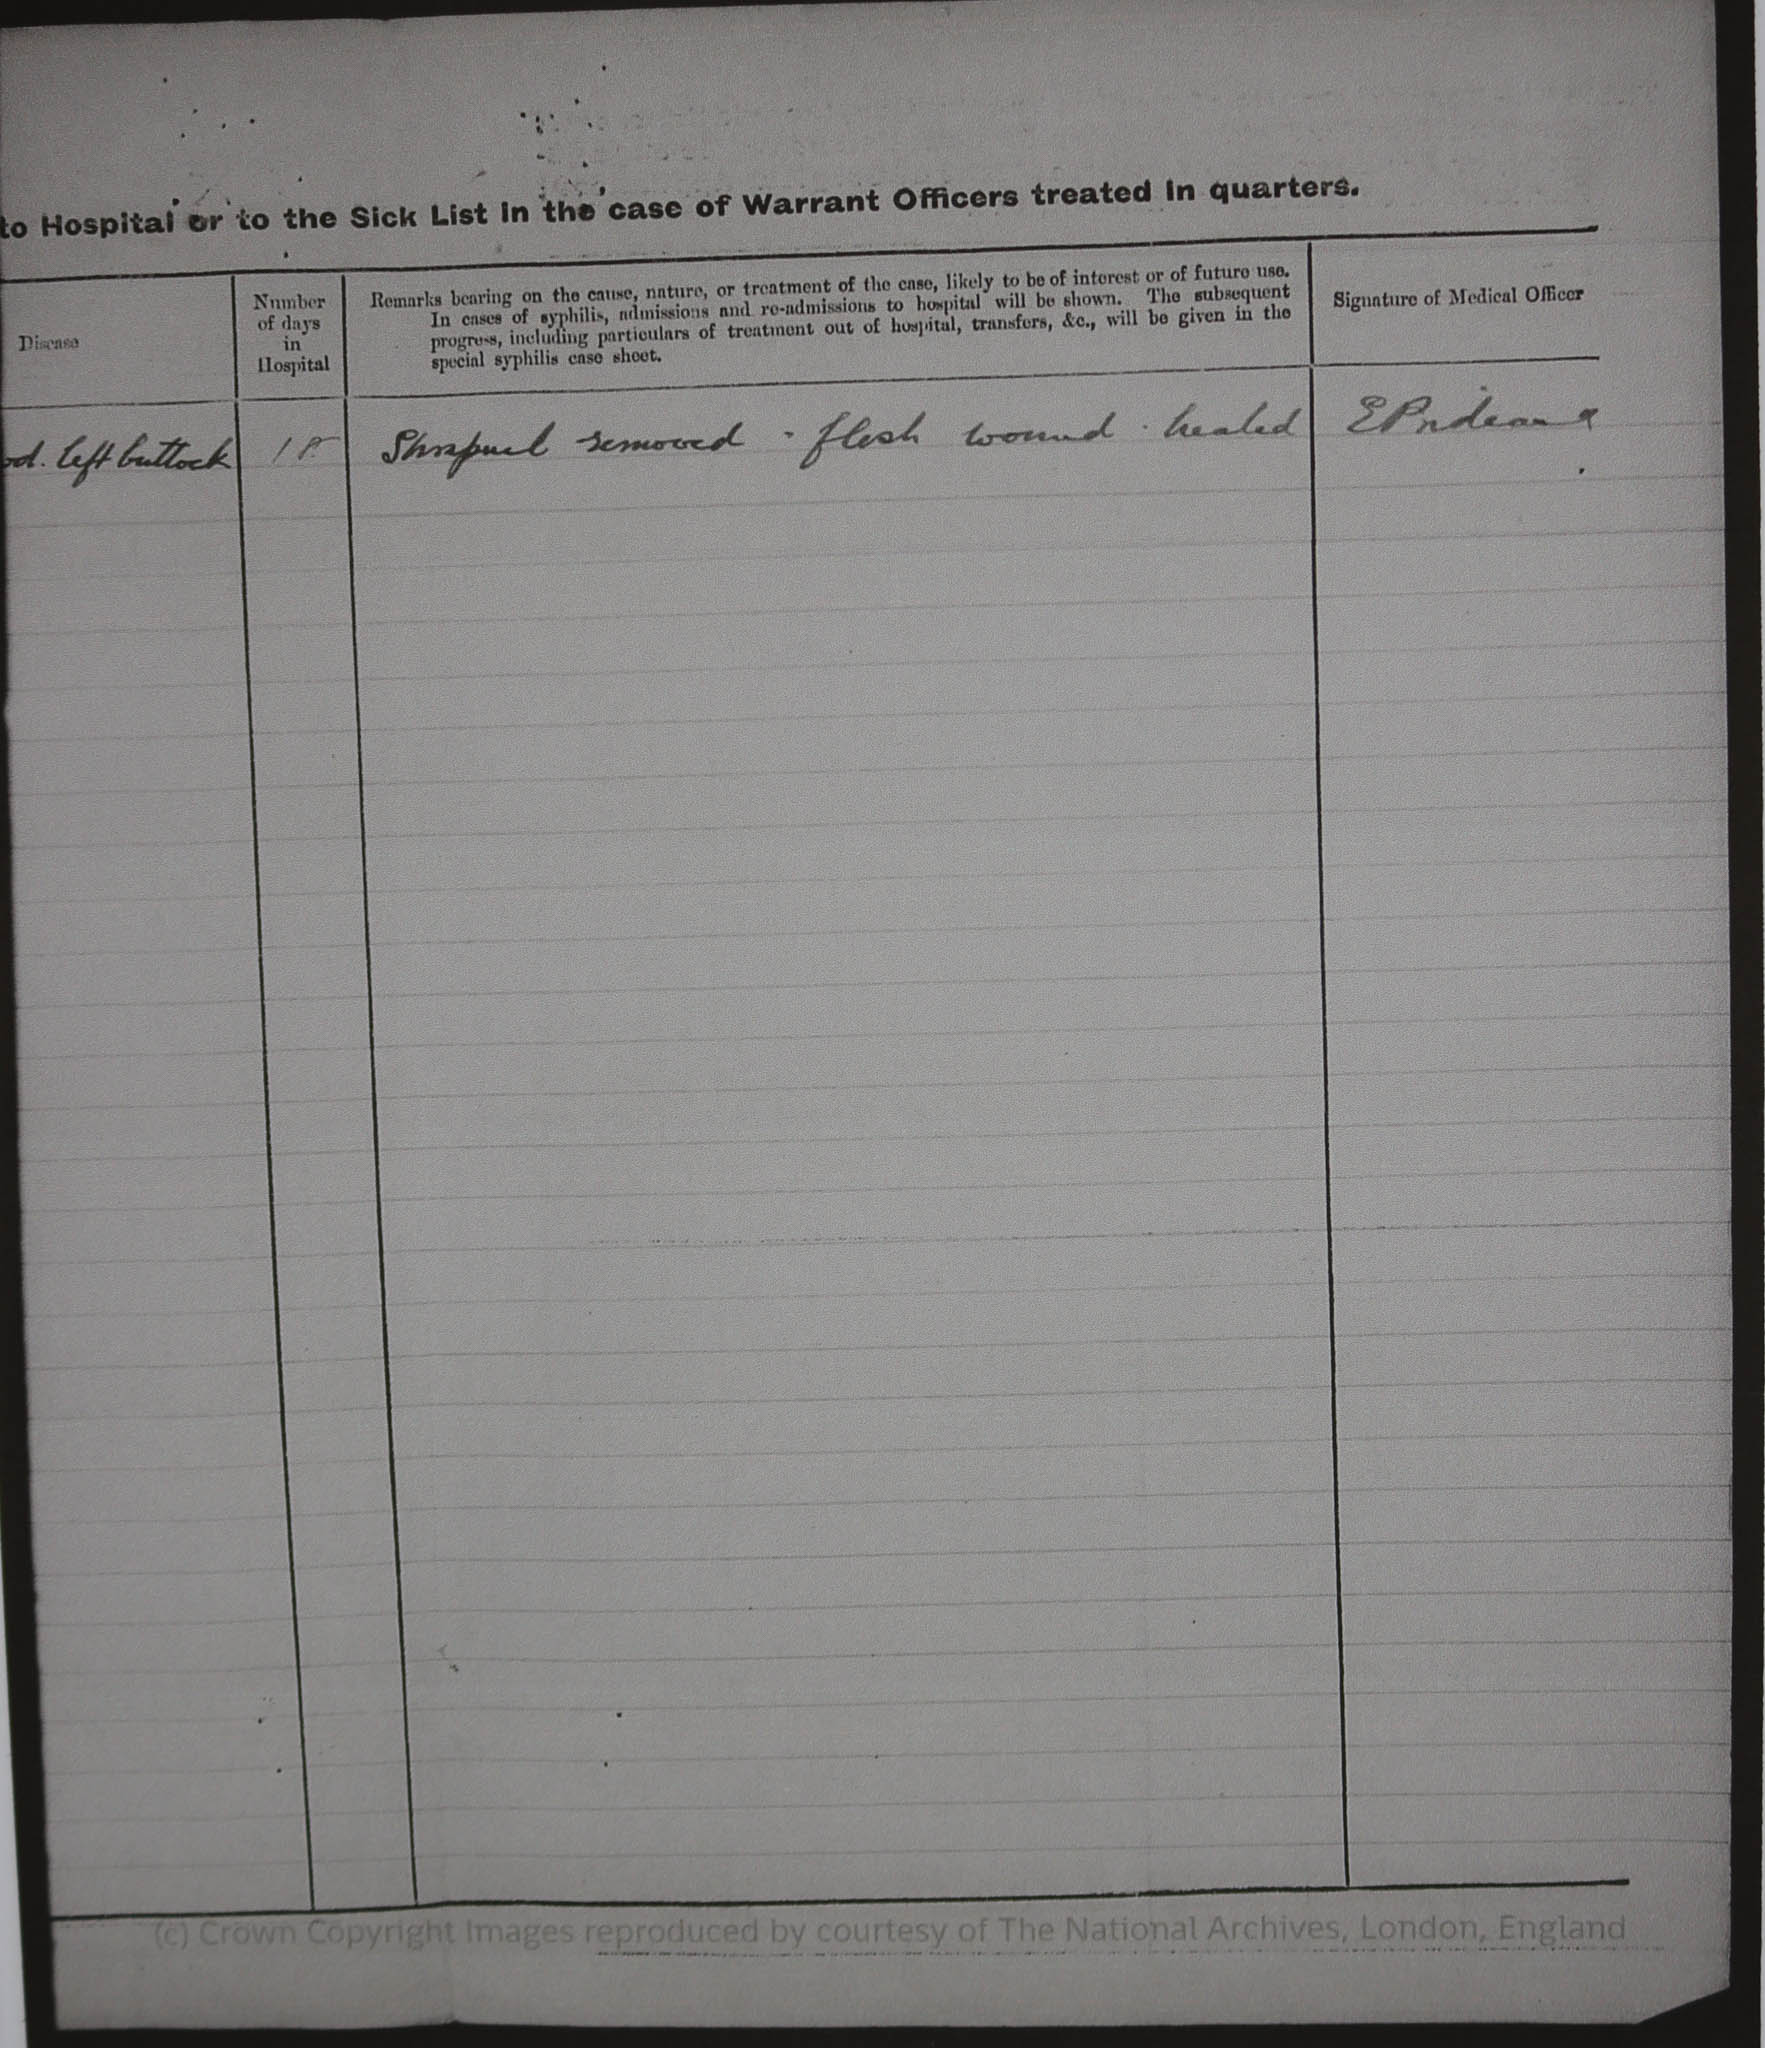 to Hospital or to the Sick List in the case of Warrant Officers treated in quarters.
Disease
Number
of days
in
Hospital
Remarks bearing on the cause, nature, or treatment of the case, likely to be of interest or of future use.
In cases of syphilis, admissions and re-admissions to hospital will be shown. The subsequent
progress, including particulars of treatment out of hospital, transfers, &c., will be given in the
special syphilis case sheet.
Signature of Medical Officer
left buttock
Shrapnel removed - flesh wound - healed
(c) Crown Copyright Images reproduced by courtesy of The National Archives, London, England